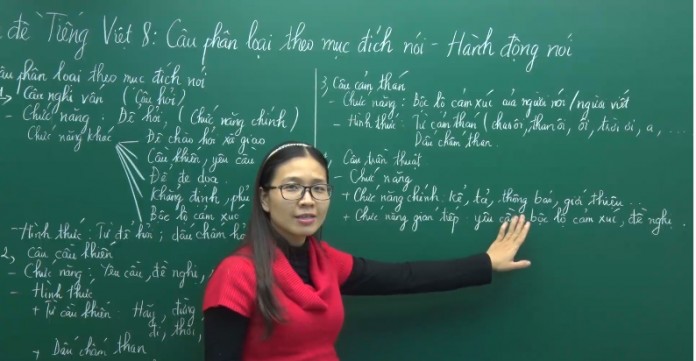 đề Tiếng Việt 8: Câu phân loại theo mục đích nói - Hành động nói
câu phân loại theo mục đích nói
1, Câu nghi vấn (Câu hỏi)
- Chức năng: Để hỏi, (Chức năng chính)
Chức năng khác
Để chào hỏi xã giao
Cầu khiến, yêu cầu
Để đe dọa
Khẳng định, phủ
Bộc lộ cảm xúc
- Hình thức: Từ để hỏi; dấu chấm hỏ
2, Câu cầu khiến
- Chức năng: Yêu cầu, đề nghị,
- Hình thức
+ Từ cầu khiến: Hãy, đừng
đi, thôi,
+ Dấu chấm than
3, Câu cảm thán
- Chức năng: Bộc lộ cảm xúc của người nói/người viết
- Hình thức: Từ cảm thán (chao ôi, than ôi, ôi, trời ơi, a, ...
Dấu chấm than.
4, Câu trần thuật
- Chức năng
+ Chức năng chính: kể, tả, thông báo, giới thiệu...
+ Chức năng gián tiếp: yêu cầu, bộc lộ cảm xúc, đề nghị...